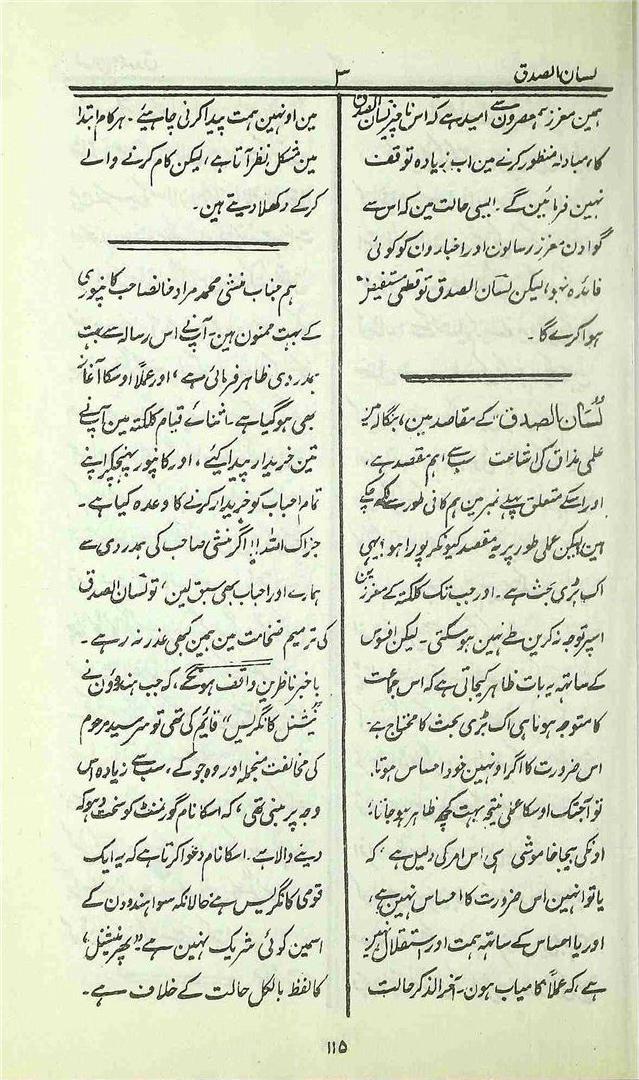 لسان الصدق
۳
ہمین معزز ہمعصرون سے امید ہے کہ اس ناچیز لسان الصدق
کا، مبادلہ منظور کرنے مین اب زیادہ توقف
نہین فرمائین گے۔ ایسی حالت مین کہ اس سے
گو ادن معزز رسالون اور اخبارون کو کوئی
فائدہ نہو، لیکن لسان الصدق تو قطعی مستفیض
ہوا کرے گا۔
لسان الصدق کے مقاصد مین، بنگالہ مین
علمی مذاق کی اشاعت سب سے اہم مقصد ہے،
اور اسکے متعلق پہلے نمبر مین ہم کافی طور سے لکھ چکے
ہین لیکن عملی طور پر یہ مقصد کیونکر پورا ہو؟ یہی
اک بڑی بحث ہے۔ اور جب تک کلکتہ کے معززین
اسپر توجہ نہ کرین طے نہین ہو سکتی۔ لیکن افسوس
کے ساتھ یہ بات ظاہر کیجاتی ہے کہ اس جماعت
کا متوجہ ہونا ہی اک بڑی بحث کا محتاج ہے۔
اس ضرورت کا اگر اونہین خود احساس ہوتا،
تو آجتک اوسکا عملی نتیجہ بہت کچھ ظاہر ہو جاتا،
اونکی بیجا خاموشی ہی اس امر کی دلیل ہے، کہ
یا تو انہین اس ضرورت کا احساس نہین ہے،
اور یا احساس کے ساتھ ہمت اور استقلال نہین
ہے، کہ عملاً کامیاب ہون۔ آخر الذکر حالت
مین اونہین ہمت پیدا کرنی چاہیے۔ ہر کام ابتدا
مین مشکل نظر آتا ہے، لیکن کام کرنے والے
کرکے دکھلا دیتے ہین۔
ہم جناب منشی محمد مراد خانصاحب کانپوری
کے بہت ممنون ہین۔ آپ نے اس رسالہ سے بہت
ہمدردی ظاہر فرمائی ہے، اور عملاً اوسکا آغاز
بھی ہو گیا ہے۔ اثنائے قیام کلکتہ مین آپ نے
تین خریدار پیدا کیئے، اور کانپور پہنچکر اپنے
تمام احباب کو خریدار کرنے کا وعدہ کیا ہے۔
جزاک اللہ!! اگر منشی صاحب کی ہمدردی سے
ہمارے اور احباب بھی سبق لین، تو لسان الصدق
کی ترمیم ضخامت مین ہمین کبھی عذر نہ رہے۔
باخبر ناظرین واقف ہونگے، کہ جب ہندوؤن نے
"نیشنل کانگریس" قائم کی تھی تو سر سید مرحوم
کی مخالفت منجملہ اور وجوہ کے، سب سے زیادہ اس
وجہ پر مبنی تھی، کہ اسکا نام گورنمنٹ کو سخت دھوکہ
دینے والا ہے۔ اسکا نام دعوا کرتا ہے کہ یہ ایک
قومی کانگریس ہے حالانکہ سوا ہندوون کے
اسمین کوئی شریک نہین ہے۔ پھر "نیشنل"
کا لفظ بالکل حالت کے خلاف ہے۔
۱۱۵